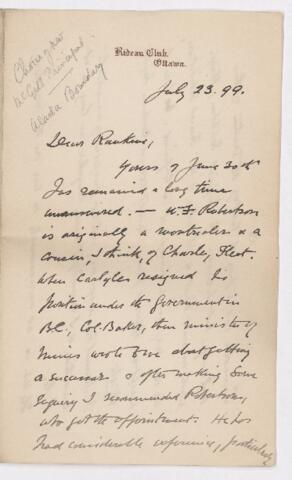 Choice of new
McGill Principal.
Alaska Boundary
Rideau Club,
Ottawa.
July 23. 99.
Dear Rankine,
Yours of June 30th
has remained a long time
unanswered. — W. F. Robertson
is originally a Montrealer & a
cousin, I think, of Charley Fleet.
When Carlyle resigned his
position under the Government in
B.C., Col. Baker, then minister of
Mines wrote to me about getting
a successor & after making some
inquiry I recommended Robertson,
who got the appointment. He has
had considerable experience, particularly